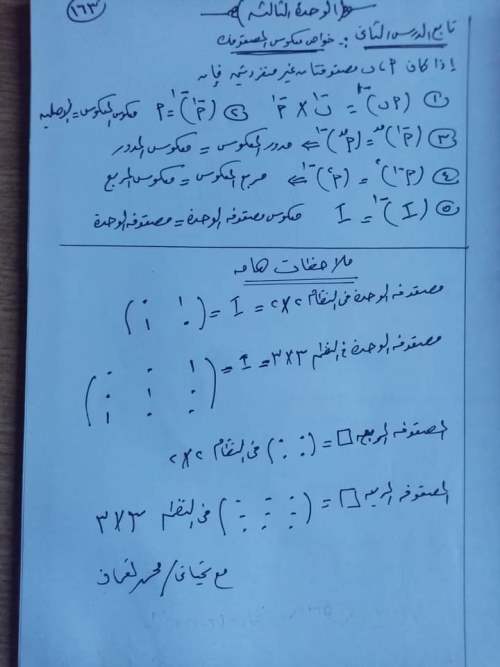 ١٦٣
(الوحدة الثالثة)
تابع الدرس الثاني :. خواص معكوس المصفوفات
إذا كانت م ، ن مصفوفتان غير منفردتين فإن
① (م ن)⁻¹ = ن⁻¹ × م⁻¹ ② (م⁻¹)⁻¹ = م معكوس المعكوس = الاصلية
③ (م⁻¹)ᵐᵈ = (مᵐᵈ)⁻¹ ⇐ مدور المعكوس = معكوس المدور
④ (م⁻¹)² = (م²)⁻¹ ⇐ مربع المعكوس = معكوس المربع
⑤ (I)⁻¹ = I معكوس مصفوفة الوحدة = مصفوفة الوحدة
ملاحظات هامه
مصفوفة الوحدة في النظام ٢×٢ = I = (١ ٠
٠ ١)
مصفوفة الوحدة في النظام ٣×٣ = I = (١ ٠ ٠
٠ ١ ٠
٠ ٠ ١)
المصفوفه = (٠ ٠
٠ ٠) في النظام ٢×٢
المصفوفه = (٠ ٠ ٠
٠ ٠ ٠
٠ ٠ ٠) في النظام ٣×٣
مع تحياتي / محمد